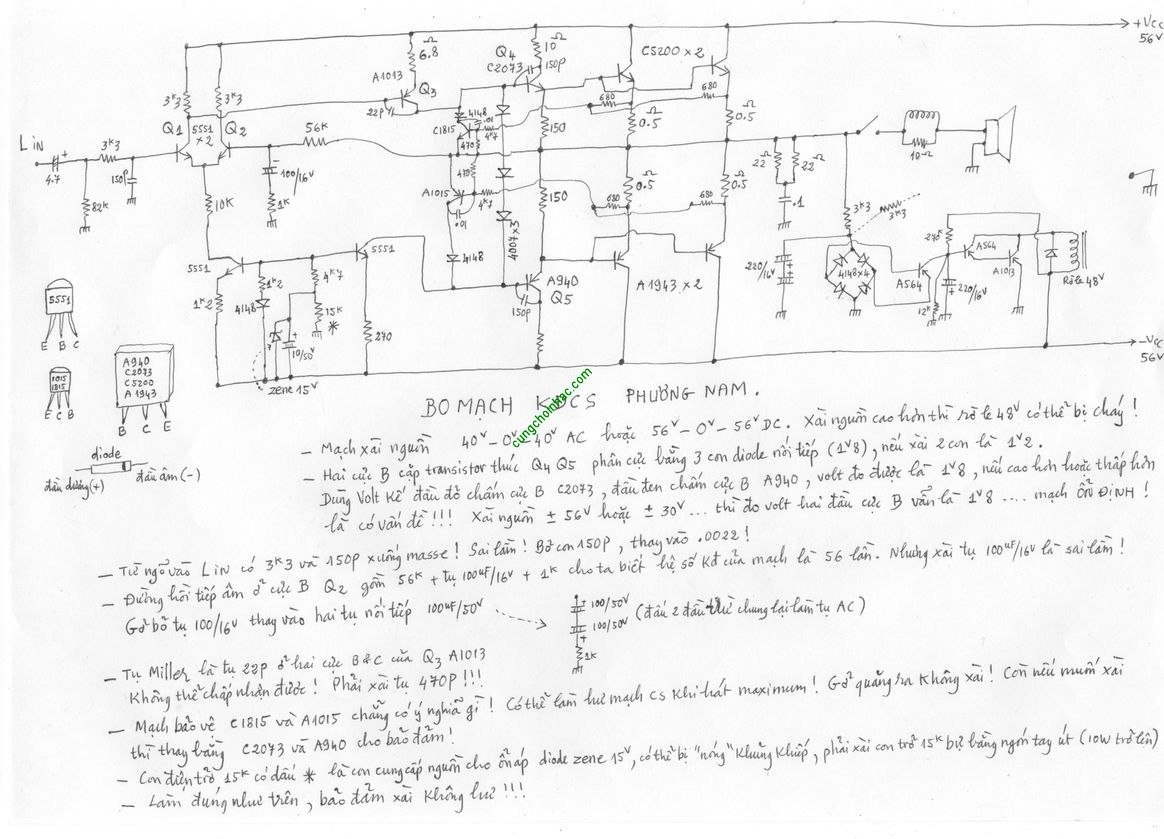 +Vcc
56V
Ω
6.8
Q4
C2073
10Ω
150P
C5200 x 2
A1013
Q3
3K3
3K3
22P
4148
680
680
Q1
5551
x 2
Q2
56K
C1815
.01
4K7
470
150
Ω
0.5
Ω
0.5
L IN
3K3
4.7
150P
82K
10K
100/16V
1K
470
A1015
4K7
.01
150
680
Ω
0.5
680
Ω
0.5
22Ω
22Ω
.1
10Ω
3K3
3K3
5551
5551
1K2
1K2
4148
4K7
15K
*
10/50V
270
4148
4007x3
A940
Q5
150P
A1943 x 2
220/16V
4148x4
270K
A564
A564
12K
220/16V
A1013
Rờ le 48V
zene 15V
-Vcc
56V
5551
E B C
1015
1815
E C B
A940
C2073
C5200
A1943
B C E
diode
đầu dương(+)
đầu âm(-)
BO MẠCH KĐCS PHƯƠNG NAM.
cungchoinhac.com
- Mạch xài nguồn 40V-0V-40V AC hoặc 56V-0V-56V DC. Xài nguồn cao hơn thì rờ le 48V có thể bị cháy!
- Hai cực B cặp transistor thúc Q4 Q5 phân cực bằng 3 con diode nối tiếp (1V8), nếu xài 2 con là 1V2.
Dùng Volt kế đầu đỏ chấm cực B C2073, đầu đen chấm cực B A940, volt đo được là 1V8, nếu cao hơn hoặc thấp hơn
là có vấn đề!!! Xài nguồn ± 56V hoặc ± 30V... thì đo volt hai đầu cực B vẫn là 1V8 .... mạch ỔN ĐỊNH!
- Từ ngõ vào L in có 3K3 và 150P xuống masse! Sai lầm! Bỏ con 150P, thay vào .0022!
- Đường hồi tiếp âm ở cực B Q2 gồm 56K + tụ 100uF/16V + 1K cho ta biết hệ số Kđ của mạch là 56 lần. Nhưng xài tụ 100uF/16V là sai lầm!
Gỡ bỏ tụ 100/16V thay vào hai tụ nối tiếp 100uF/50V
+ 100/50V
100/50V
+
1K
(đấu 2 đầu trừ chung lại làm tụ AC)
- Tụ Miller là tụ 22P ở hai cực B&C của Q3 A1013
Không thể chấp nhận được! Phải xài tụ 470P!!!
- Mạch bảo vệ C1815 và A1015 chẳng có ý nghĩa gì! Có thể làm hư mạch CS khi hát maximum! Gỡ quăng ra không xài! Còn nếu muốn xài
thì thay bằng C2073 và A940 cho bảo đảm!
- Con điện trở 15K có dấu * là con cung cấp nguồn cho ổn áp diode zene 15V, có thể bị "nóng" khủng khiếp, phải xài con trở 15K bự bằng ngón tay út (10W trở lên)
- Làm đúng như trên, bảo đảm xài không hư!!!